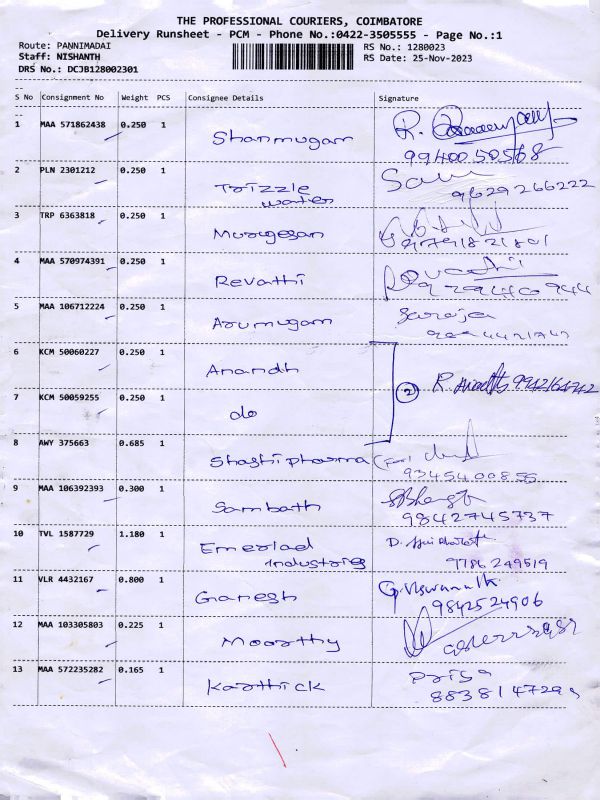 THE PROFESSIONAL COURIERS, COIMBATORE
Delivery Runsheet - PCM - Phone No.:0422-3505555 - Page No.:1
Route: PANNIMADAI RS No.: 1280023
Staff: NISHANTH RS Date: 25-Nov-2023
DRS No.: DCJB128002301
S No Consignment No Weight PCS Consignee Details Signature
1 MAA 571862438 0.250 1 Shanmugam R.
9940050568
2 PLN 2301212 0.250 1 Trizzle water
9629266222
3 TRP 6363818 0.250 1 Murugesan
4 MAA 570974391 0.250 1 Revathi
5 MAA 106712224 0.250 1 Arumugam Saroja
6 KCM 50060227 0.250 1 Anandh
2 R.
7 KCM 50059255 0.250 1 do
8 AWY 375663 0.685 1 Shasti pharma
9345400855
9 MAA 106392393 0.300 1 Sambath
9842745737
10 TVL 1587729 1.180 1 Emerlad D.
Industries 9786249519
11 VLR 4432167 0.800 1 Ganesh
9842524906
12 MAA 103305803 0.225 1 Moorthy
13 MAA 572235282 0.165 1 Karthick Priya